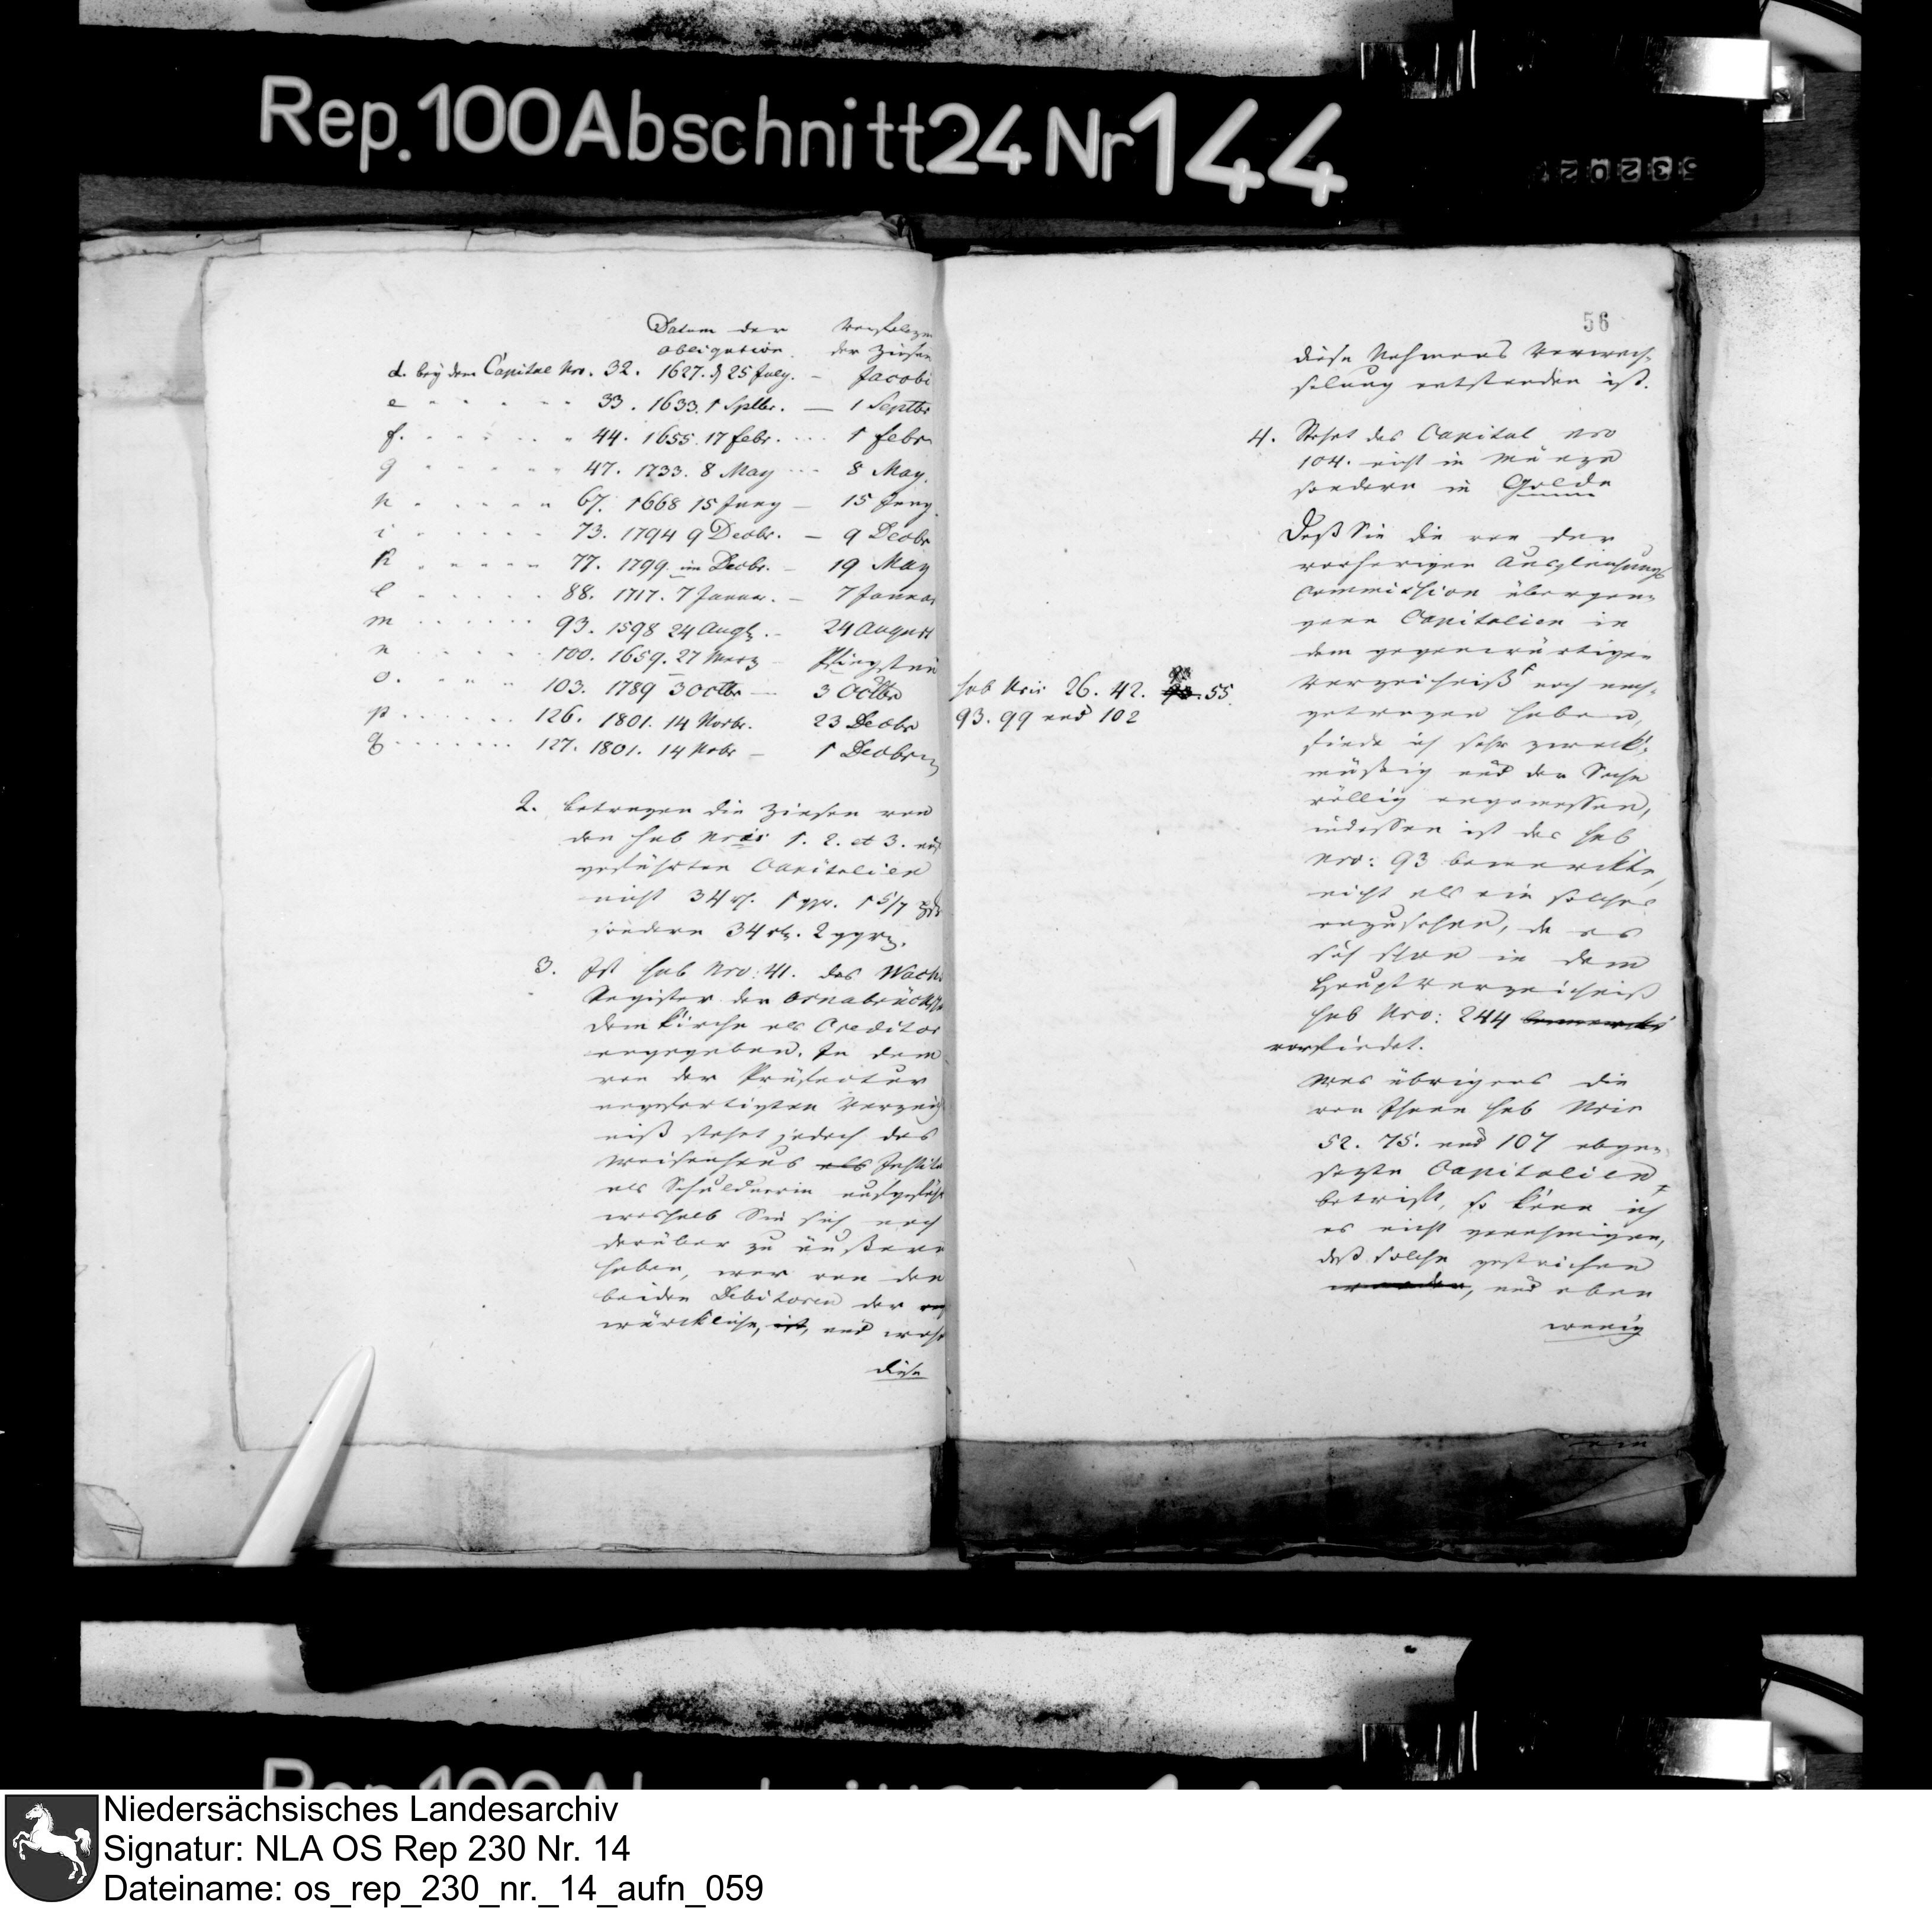 Rep. 100 Abschnitt 24 Nr 144
Datum der Verfallzeit
Obligation. der Zinsen
d. bey dem Capital Nro. 32. 1627. d 25 July. – Jacobi
e 33. 1633. 1 Sptbr. — 1 Septbr
f. 44. 1655. 17 febr. 1 febr
g 47. 1733. 8 May 8 May.
h 67. 1668 15 Juny – 15 Juny.
i 73. 1794 9 Decbr. – 9 Decbr
k 77. 1799. im Decbr. – 19 May
l 88. 1717. 7 Januar. – 7 Januar
m 93. 1598 24 Augst. – 24 August
n 100. 1659. 27 Merz – Pfingsten
o. 103. 1789 3 Octbr — 3 Octbr
p 126. 1801. 14 Novbr. 23 Decbr
q 127. 1801. 14 Nobr – 1 Decbr
2. Betragen die Zinsen von
den sub Nris 1. 2. et 3. auf
geführten Capitalien
nicht 34 rt. 1 ggr. 1 5/7
sondern 34 rt. 2 ggr.
3. Ist sub Nro: 41. das
Register der Osnabrück
Domkirche als Creditor
angegeben. In dem
von der Präfectur
angefertigten Verzeich
niß stehet jedoch das
Waisenhaus als
als Schuldnerin aufgeführt
weshalb Sie sich noch
darüber zu äußern
haben, wer von den
beiden Debitoren der
würckliche, ist, und woher
diese
56
diese Nahmens Verwech-
selung entstanden ist.
4. Stehet das Capital Nro
104. nicht in Münze
sondern in Golde
Daß Sie die von der
vorherigen Ausgleichungs
Commission übergan-
genen Capitalien in
dem gegenwärtigen
Verzeichniß noch nach-
getragen haben,
sub Nris 26. 42. 55.
93. 99 und 102
finde ich sehr zweck-
mäßig und der Sache
völlig angemessen,
indessen ist das sub
Nro: 93 bemerckte,
nicht als ein solches
anzusehen, da es
sich schon in dem
Hauptverzeichniß
sub Nro: 244 bemerckt
vorfindet.
Was übrigens die
von Ihnen sub Nris
52. 75. und 107 abge-
setzte Capitalien
betrifft, so kann ich
es nicht genehmigen,
daß solche gestrichen
werden, und eben
wenig
Niedersächsisches Landesarchiv
Signatur: NLA OS Rep 230 Nr. 14
Dateiname: os_rep_230_nr._14_aufn_059